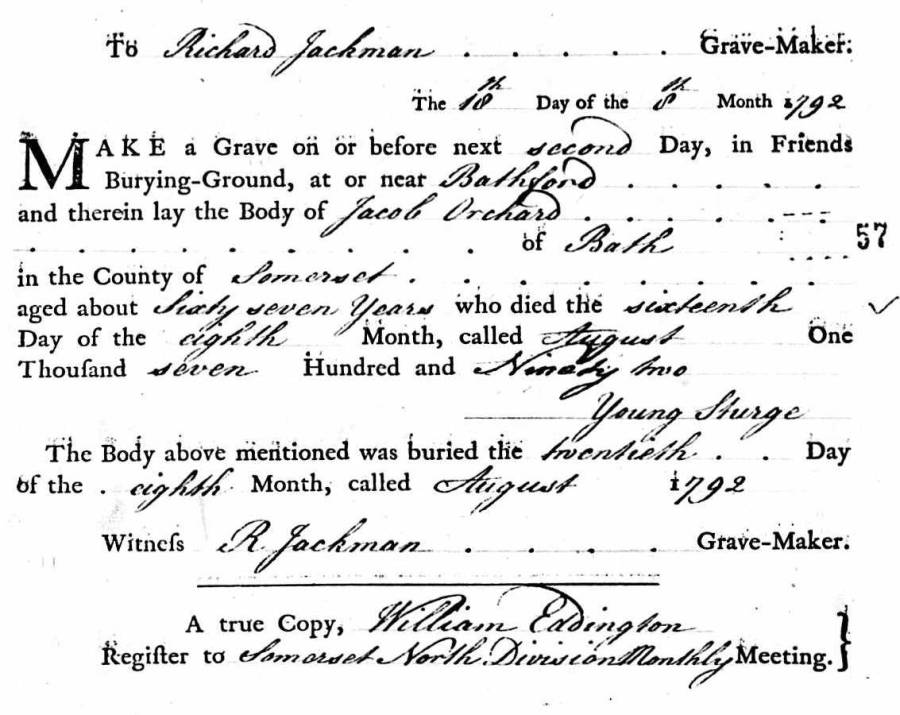 To Richard Jackman . . . . . Grave-Maker.
The 18th Day of the 8th Month 1792
MAKE a Grave on or before next second Day, in Friends
Burying-Ground, at or near Bathford . . . . .
and therein lay the Body of Jacob Orchard . . . . .
. . . . . . . . . of Bath 57
in the County of Somerset . . . . . . . .
aged about Sixty seven Years who died the sixteenth ✓
Day of the eighth Month, called August One
Thouſand seven Hundred and Ninety two
Young Sturge
The Body above mentioned was buried the twentieth . . Day
of the . eighth Month, called August 1792
Witneſs R Jackman . . . . Grave-Maker.
A true Copy, William Eddington
Regiſter to Somerset North Division Monthly Meeting. }